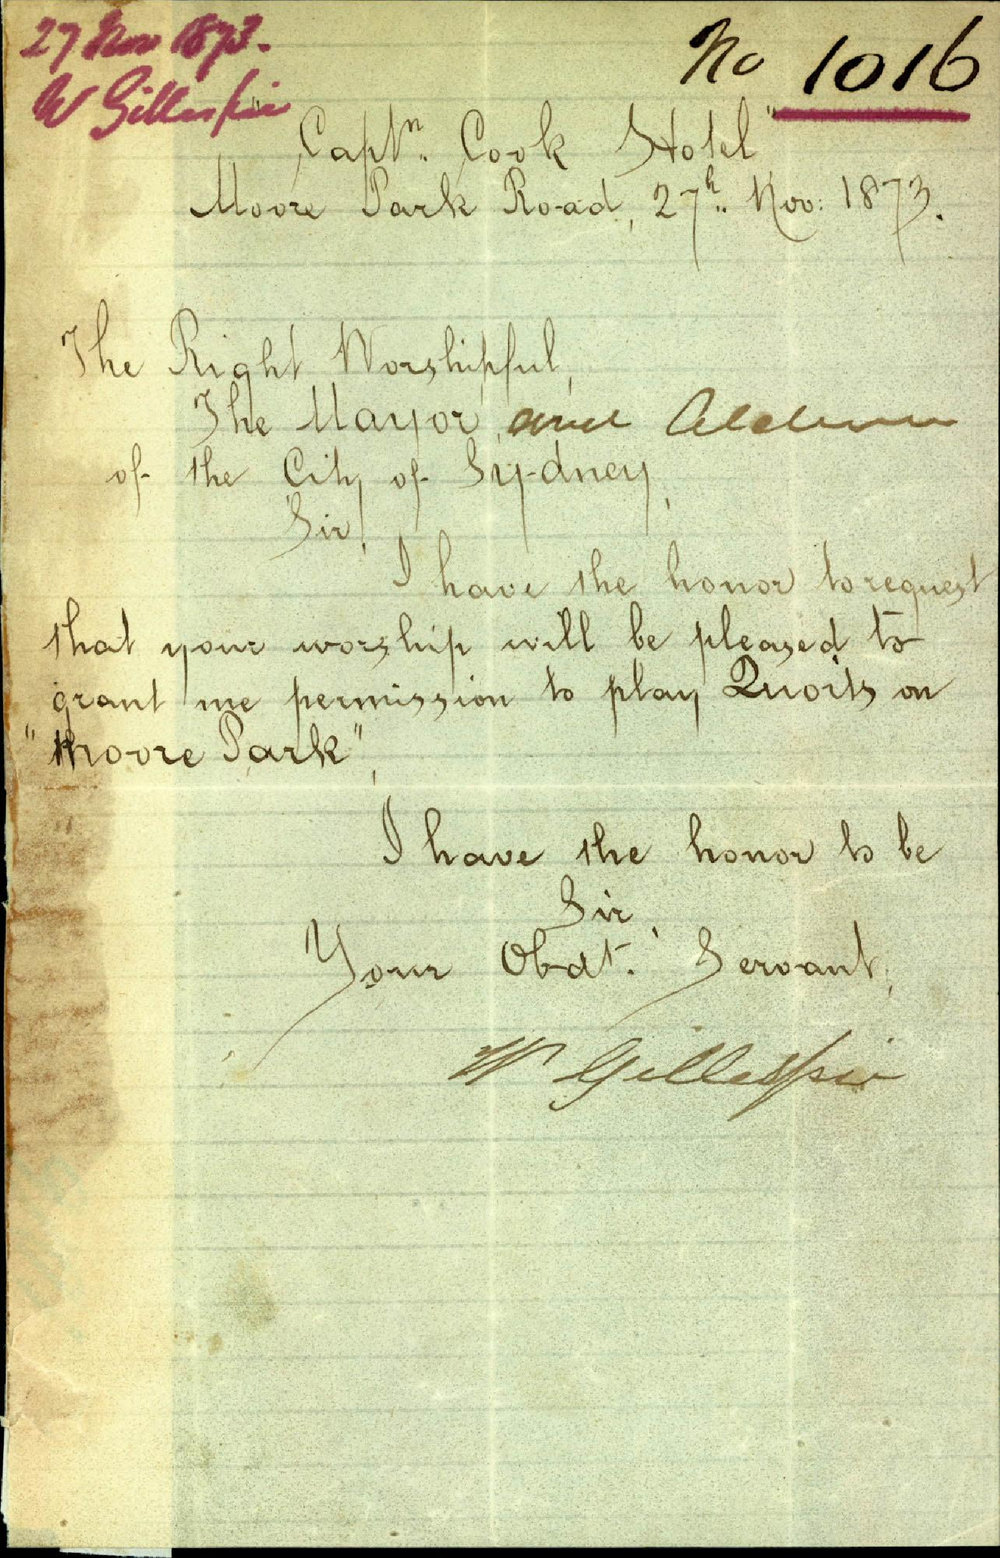 27 Nov 1873.
W Gillespie
No 1016
"Captn. Cook Hotel"
Moore Park Road, 27th. Nov: 1873.
The Right Worshipful,
The Mayor, and Aldermen
of the City of Sydney,
Sir,
I have the honor to request
that your worship will be pleased to
grant me permission to play Quoits on
"Moore Park",
I have the honor to be
Sir,
Your Obdt. Servant,
W Gillespie